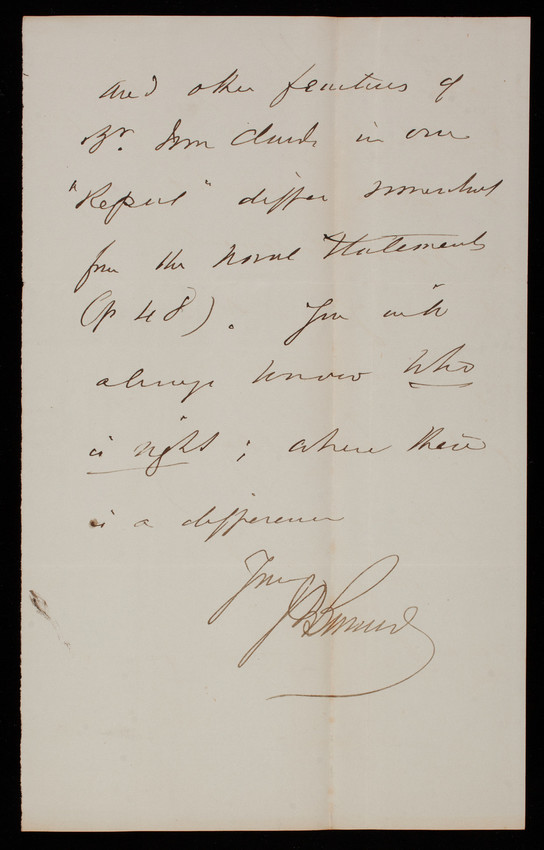 and other features of
Br. Iron Clads in our
"Report" differ somewhat
from the Naval Statements
(p 48). You will
always know who
is right; where there
is a difference
Yrs
J G Barnard